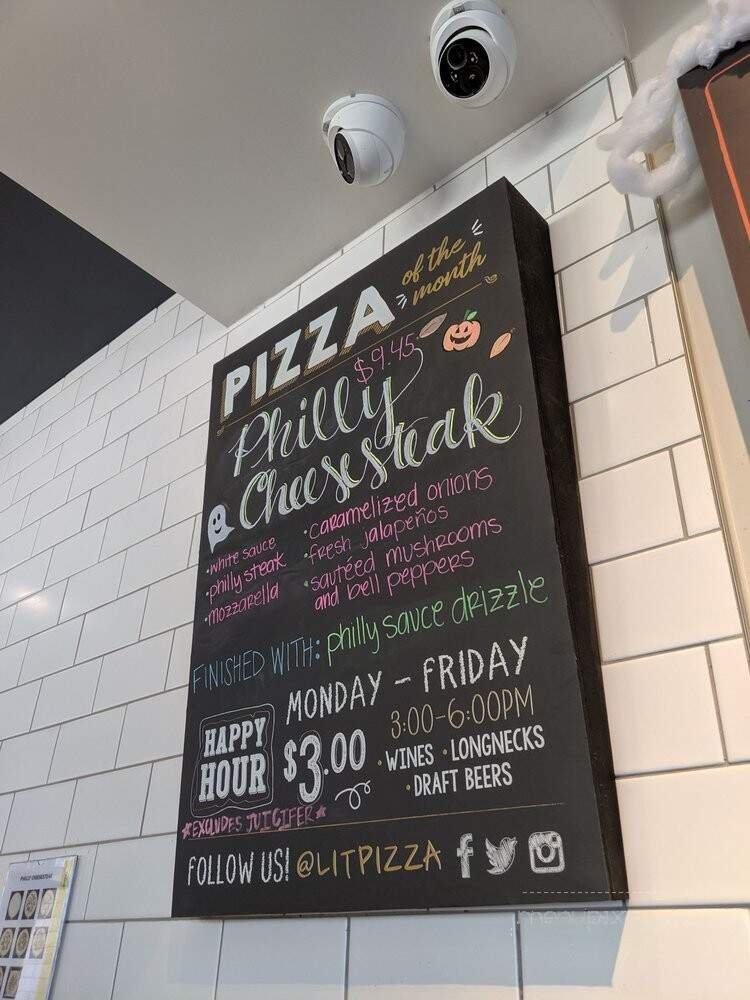 PIZZA of the month
$9.45
Philly
Cheesesteak
• white sauce
• philly steak
• mozzarella
• caramelized onions
• fresh jalapeños
• sautéed mushrooms
and bell peppers
FINISHED WITH: philly sauce drizzle
MONDAY - FRIDAY
HAPPY
HOUR
$3.00
3:00-6:00PM
• WINES • LONGNECKS
• DRAFT BEERS
*EXCLUDES JUICIFER*
FOLLOW US! @LITPIZZA
PHILLY CHEESESTEAK